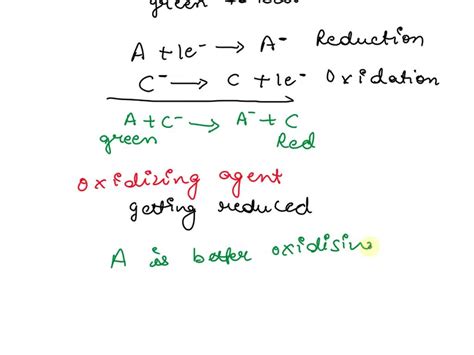 green to
A + 1e⁻ → A⁻ Reduction
C⁻ → C + 1e⁻ Oxidation
A + C⁻ → A⁻ + C
green Red
oxidizing agent
getting reduced
A is better oxidisin